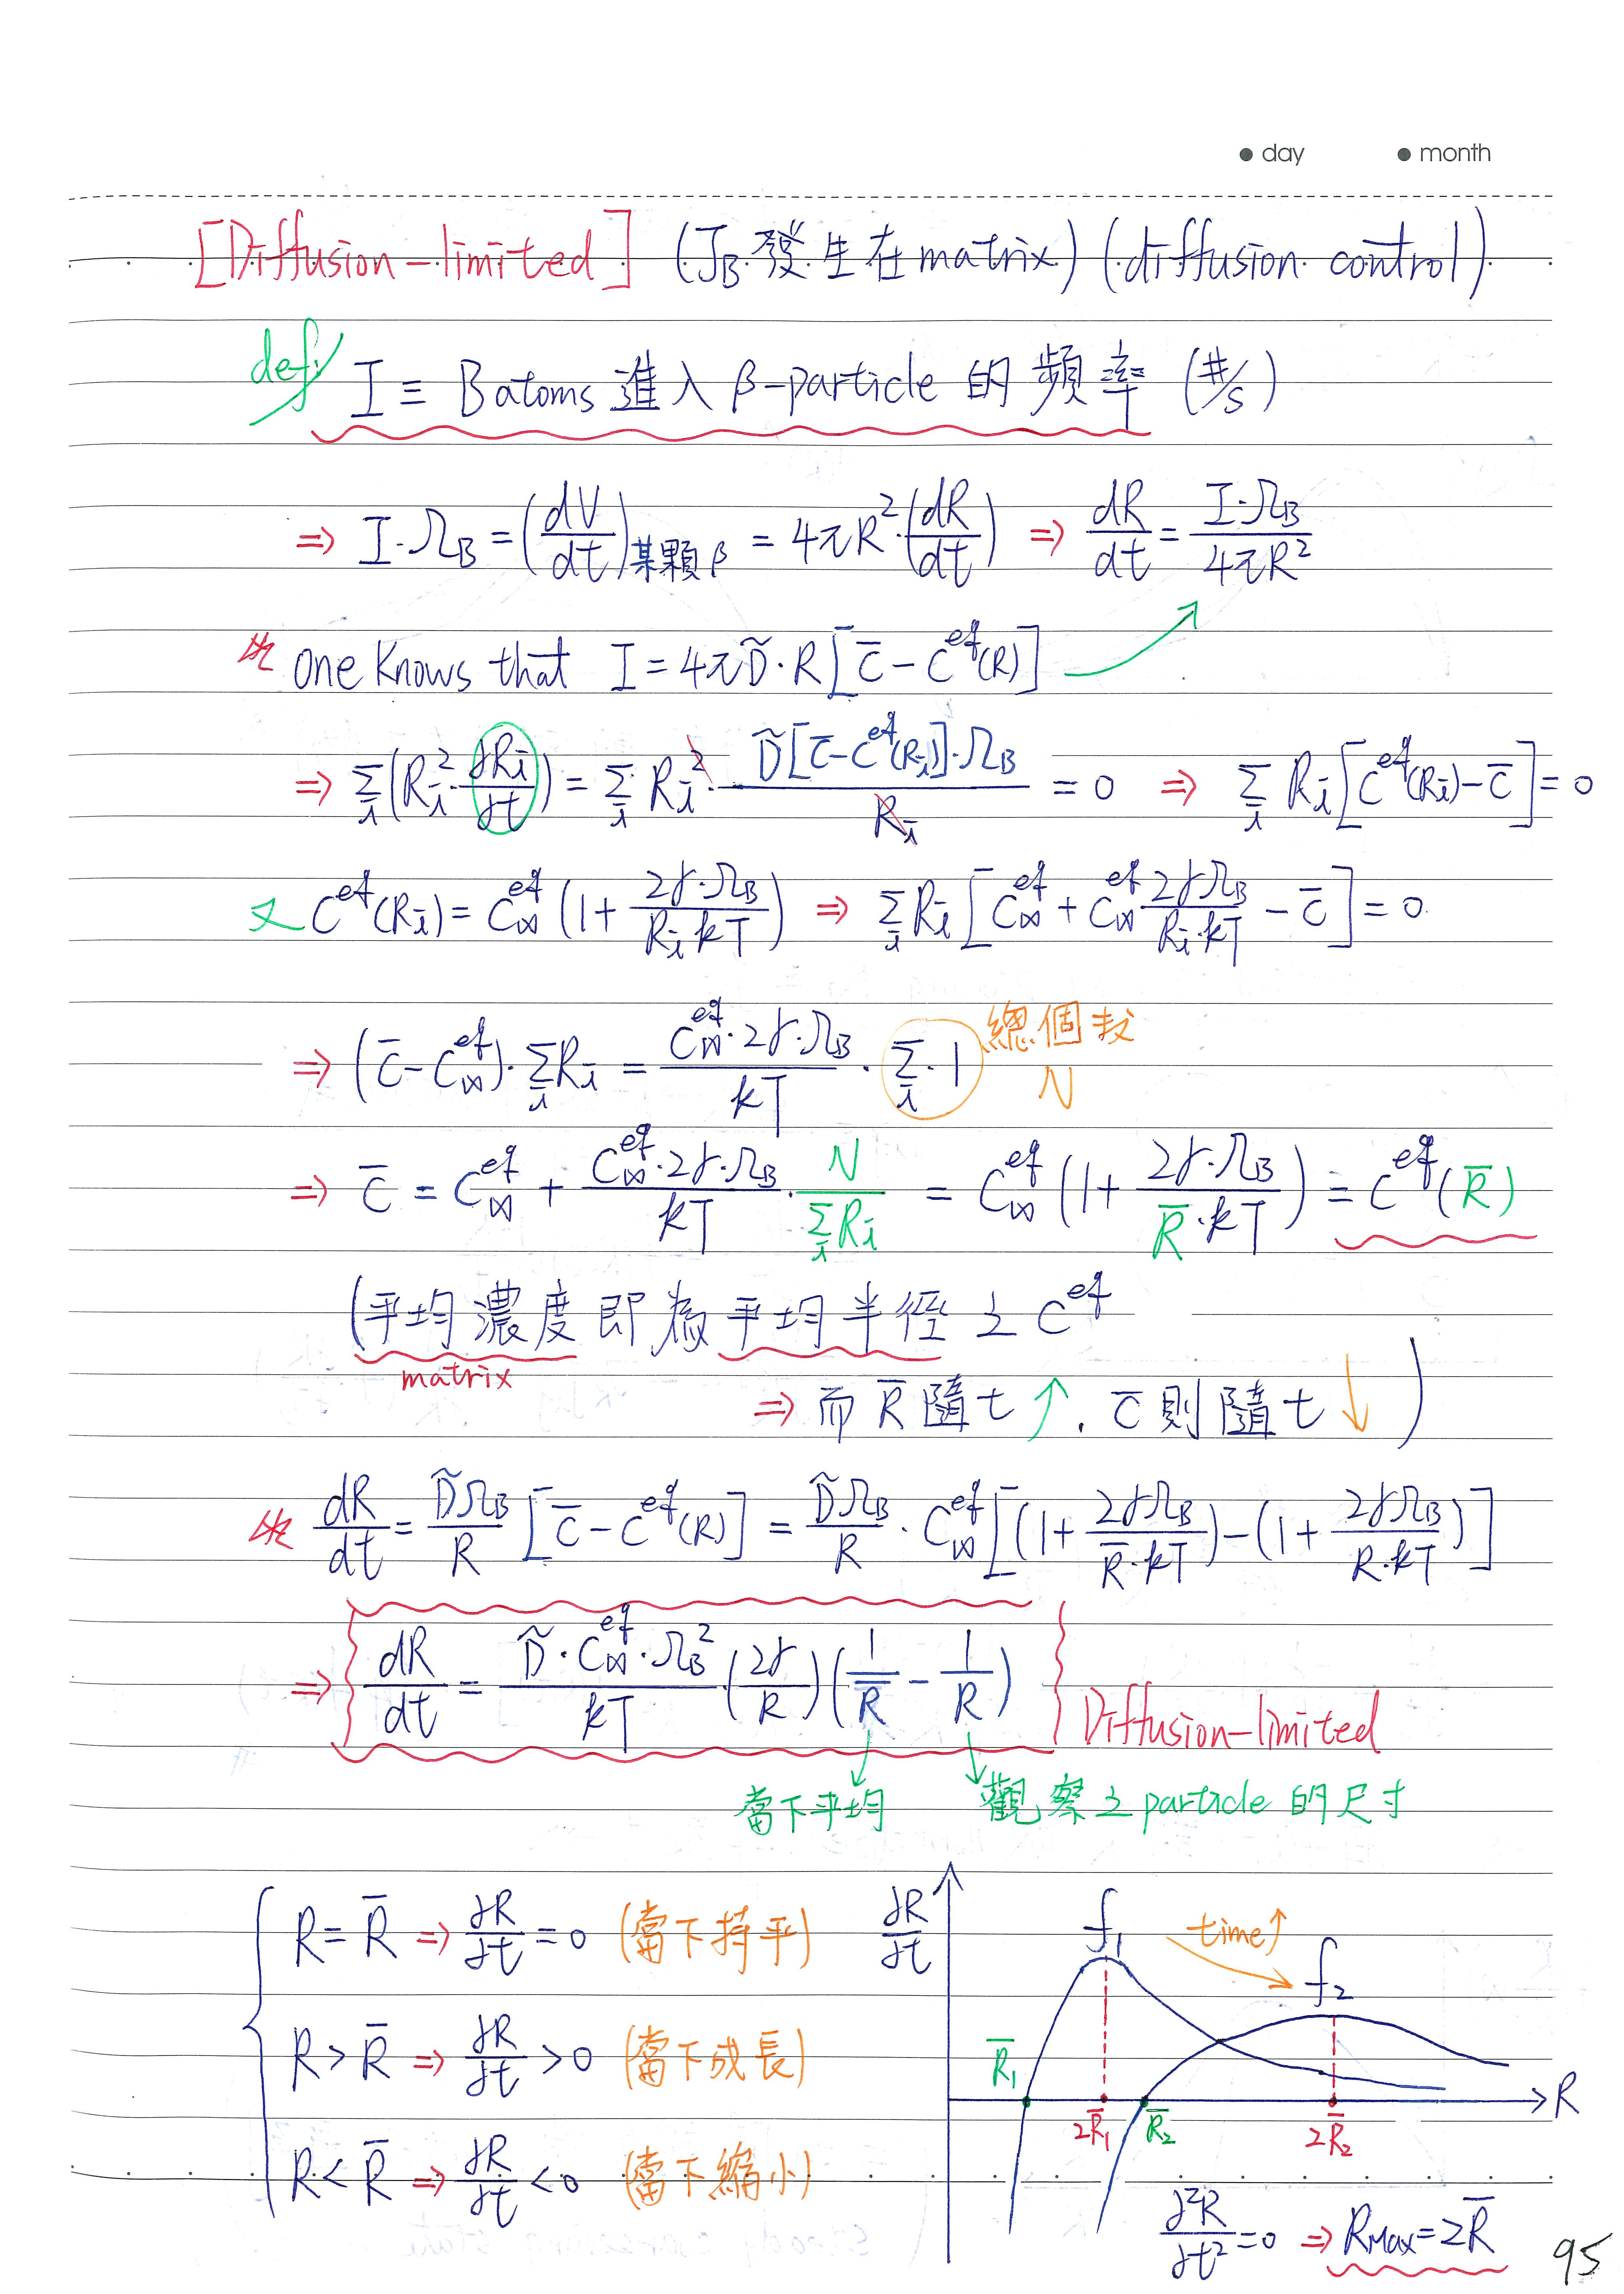 ● day ● month
[Diffusion-limited] (J_B 發生在matrix) (diffusion control)
def: I ≡ B atoms 進入 β-particle 的頻率 (#/s)
⇒ I·Ω_B = (dV/dt)某顆β = 4πR²·(dR/dt) ⇒ dR/dt = I·Ω_B / 4πR²
one knows that I = 4πD̃·R[C̄ - C^eq(R)]
⇒ Σ_i (R_i²·∂R_i/∂t) = Σ_i R_i²· D̃[C̄ - C^eq(R_i)]·Ω_B / R_i = 0 ⇒ Σ_i R_i[C^eq(R_i) - C̄] = 0
又 C^eq(R_i) = C_∞^eq (1 + 2γ·Ω_B / R_i·kT) ⇒ Σ_i R_i[C_∞^eq + C_∞^eq 2γΩ_B / R_i·kT - C̄] = 0
⇒ (C̄ - C_∞^eq)·Σ_i R_i = C_∞^eq·2γ·Ω_B / kT · Σ_i·1 總個数 N
⇒ C̄ = C_∞^eq + C_∞^eq·2γ·Ω_B / kT · N / Σ_i R_i = C_∞^eq (1 + 2γ·Ω_B / R̄·kT) = C^eq(R̄)
(平均濃度即為平均半徑之 C^eq
matrix
⇒ 而 R̄ 隨 t ↑. C̄ 則隨 t ↓)
dR/dt = D̃Ω_B / R [C̄ - C^eq(R)] = D̃Ω_B / R · C_∞^eq[(1 + 2γΩ_B / R̄·kT) - (1 + 2γΩ_B / R·kT)]
⇒ dR/dt = D̃·C_∞^eq·Ω_B² / kT · (2γ/R)(1/R̄ - 1/R) Diffusion-limited
當下平均 觀察之 particle 的尺寸
R = R̄ ⇒ ∂R/∂t = 0 (當下持平)
R > R̄ ⇒ ∂R/∂t > 0 (當下成長)
R < R̄ ⇒ ∂R/∂t < 0 (當下縮小)
∂R/∂t f₁ time↑ f₂
R̄₁ R
2R̄₁ R̄₂ 2R̄₂
∂²R/∂t² = 0 ⇒ R_Max = 2R̄
95